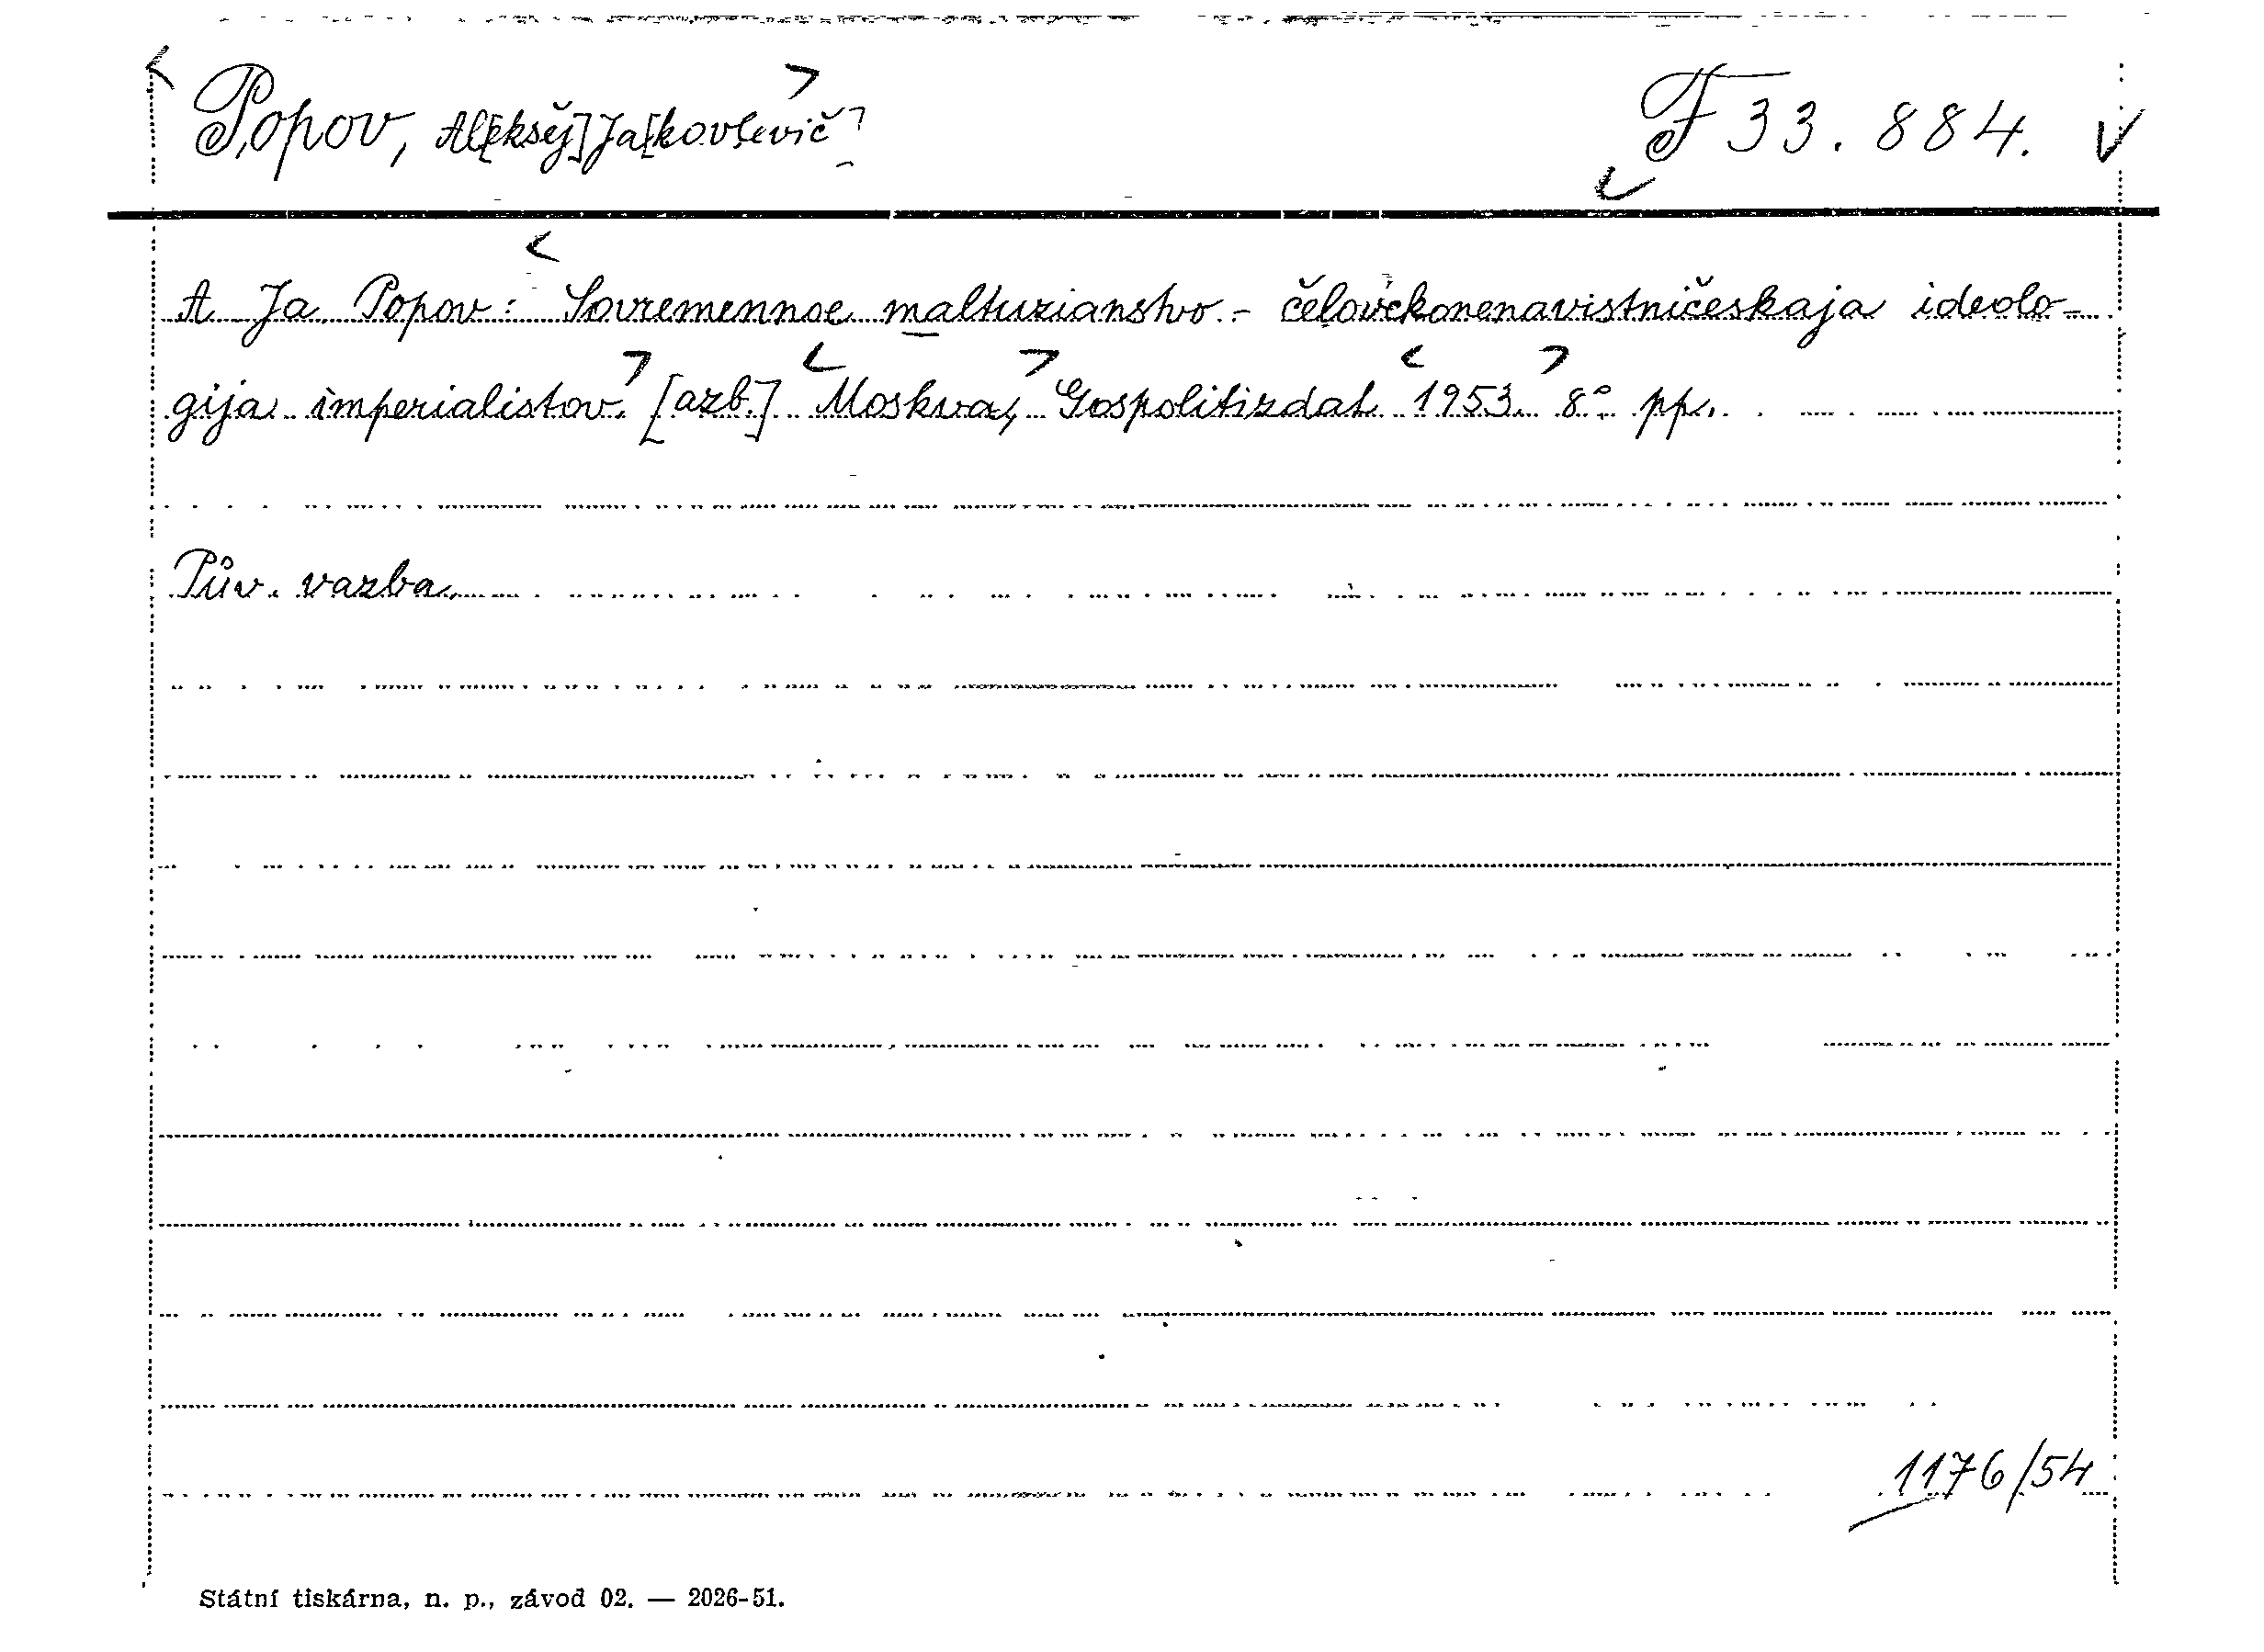 Popov, Al[eksěj] Ja[kovlevič] F 33.884.
A Ja Popov: Sovremennoe maltuzianstvo - čelověkonenavistničeskaja ideolo-
gija imperialistov. [azb.] Moskva, Gospolitizdat 1953. 8° pp.
Pův. vazba.
1176/54
Státní tiskárna, n. p., závod 02. — 2026-51.